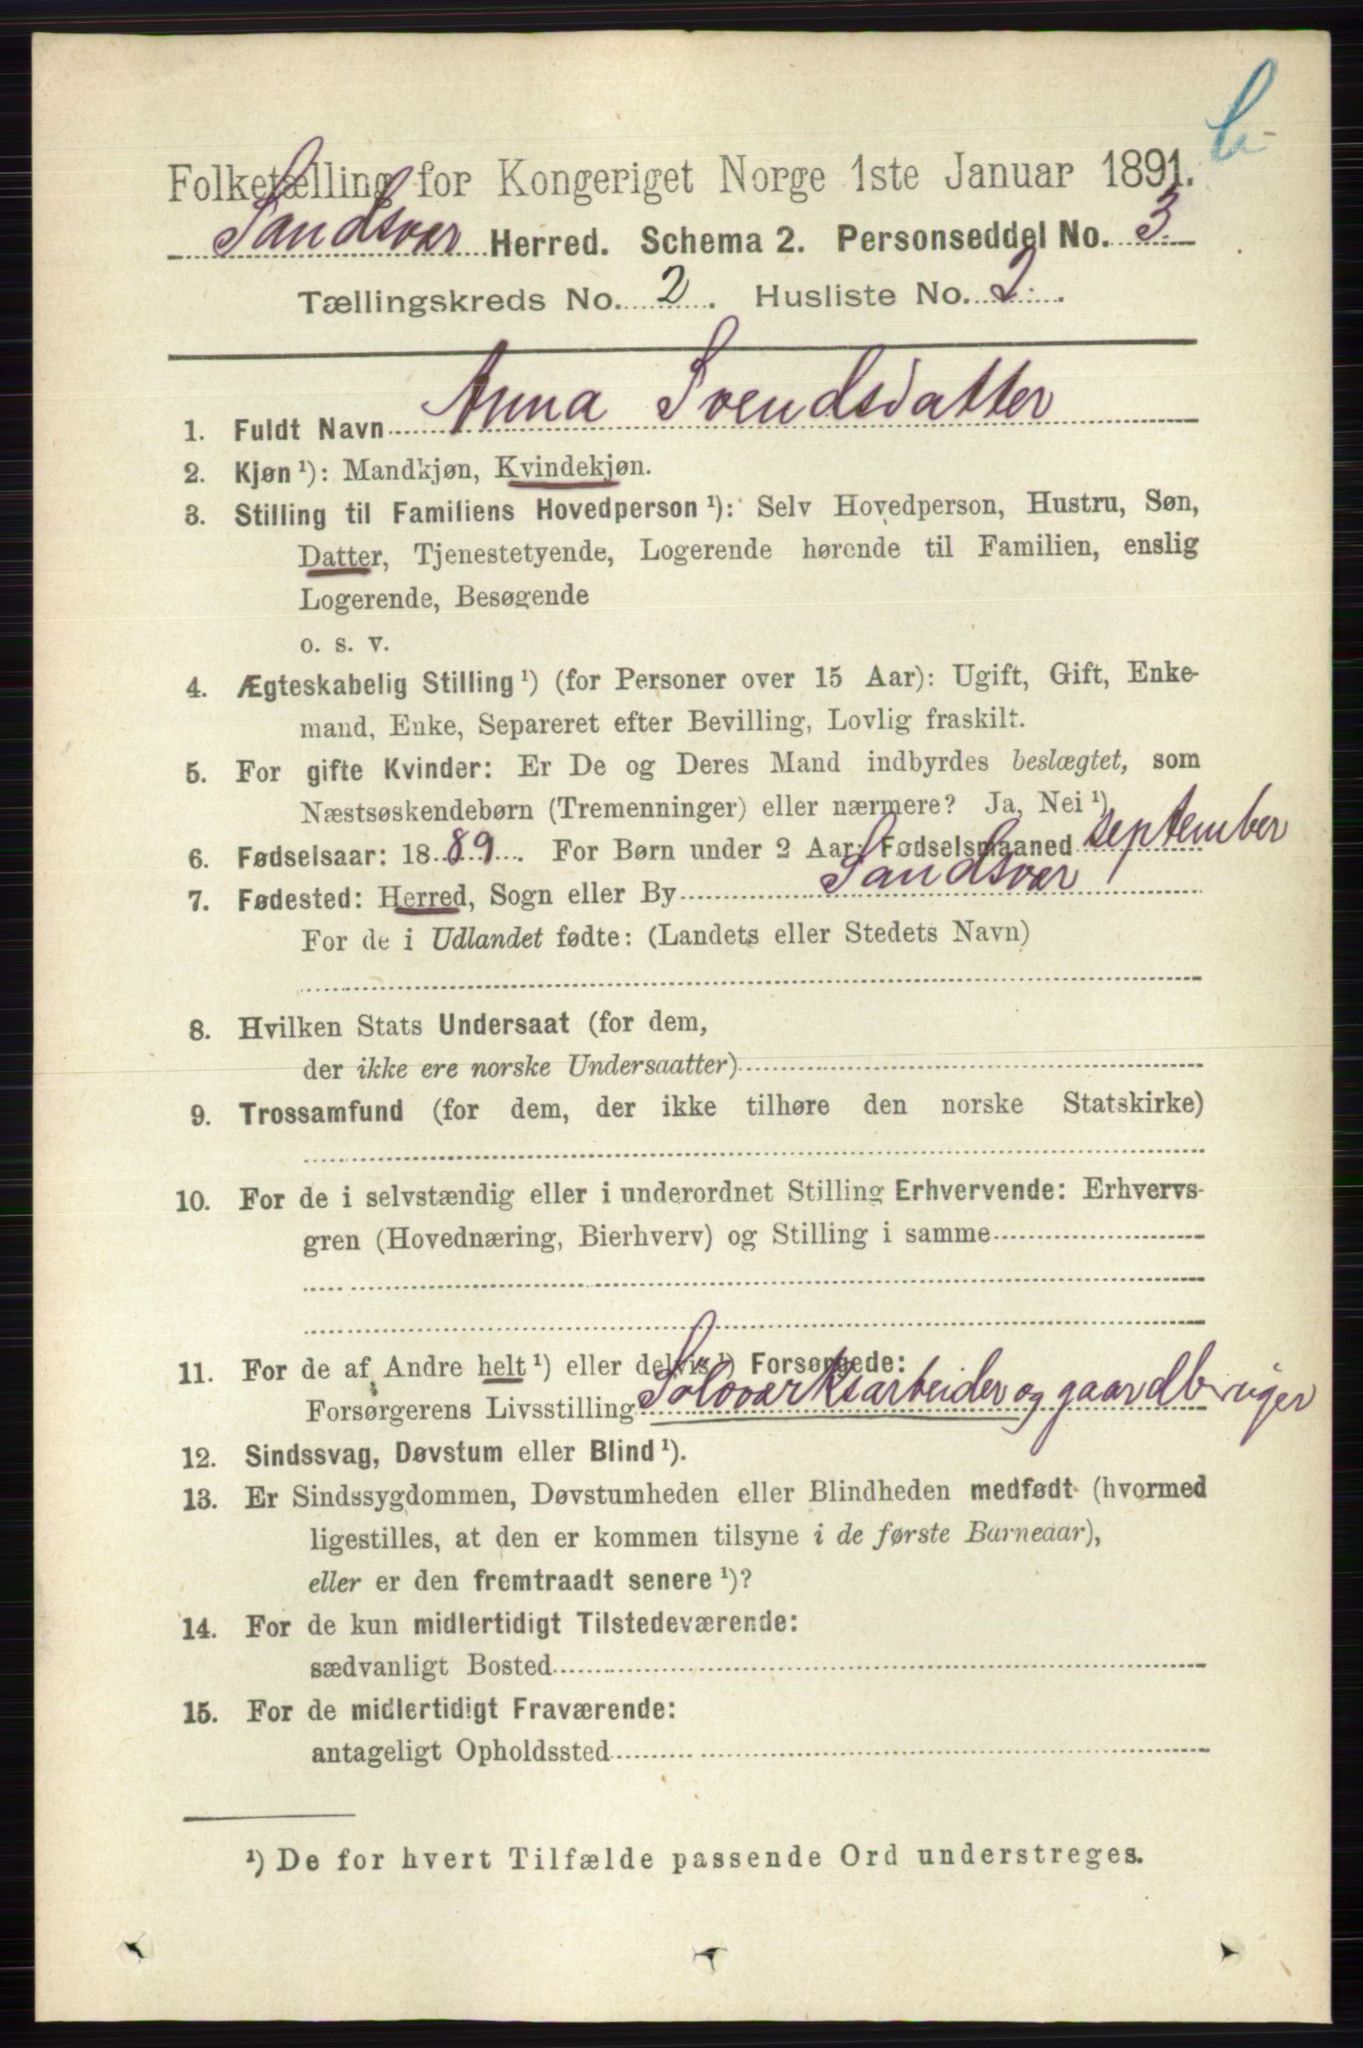 Folketælling for Kongeriget Norge 1ste Januar 1891.
Sandsvær Herred. Schema 2. Personseddel No. 3
Tællingskreds No. 2. Husliste No. 2.
1. Fuldt Navn Anna Svendsdatter
2. Kjøn ¹): Mandkjøn, Kvindekjøn.
3. Stilling til Familiens Hovedperson ¹): Selv Hovedperson, Hustru, Søn,
Datter, Tjenestetyende, Logerende hørende til Familien, enslig
Logerende, Besøgende
o. s. v.
4. Ægteskabelig Stilling ¹) (for Personer over 15 Aar): Ugift, Gift, Enke-
mand, Enke, Separeret efter Bevilling, Lovlig fraskilt.
5. For gifte Kvinder: Er De og Deres Mand indbyrdes beslægtet, som
Næstsøskendebørn (Tremenninger) eller nærmere? Ja, Nei ¹).
6. Fødselsaar: 1889. For Børn under 2 Aar: Fødselsmaaned september
7. Fødested: Herred, Sogn eller By Sandsvær
For de i Udlandet fødte: (Landets eller Stedets Navn)
8. Hvilken Stats Undersaat (for dem,
der ikke ere norske Undersaatter)
9. Trossamfund (for dem, der ikke tilhøre den norske Statskirke)
10. For de i selvstændig eller i underordnet Stilling Erhvervende: Erhvervs-
gren (Hovednæring, Bierhverv) og Stilling i samme
11. For de af Andre helt ¹) eller delvis ¹) Forsørgede:
Forsørgerens Livsstilling Sølvværksarbeider og gaardbruger
12. Sindssvag, Døvstum eller Blind ¹).
13. Er Sindssygdommen, Døvstumheden eller Blindheden medfødt (hvormed
ligestilles, at den er kommen tilsyne i de første Barneaar),
eller er den fremtraadt senere ¹)?
14. For de kun midlertidigt Tilstedeværende:
sædvanligt Bosted
15. For de midlertidigt Fraværende:
antageligt Opholdssted
¹) De for hvert Tilfælde passende Ord understreges.